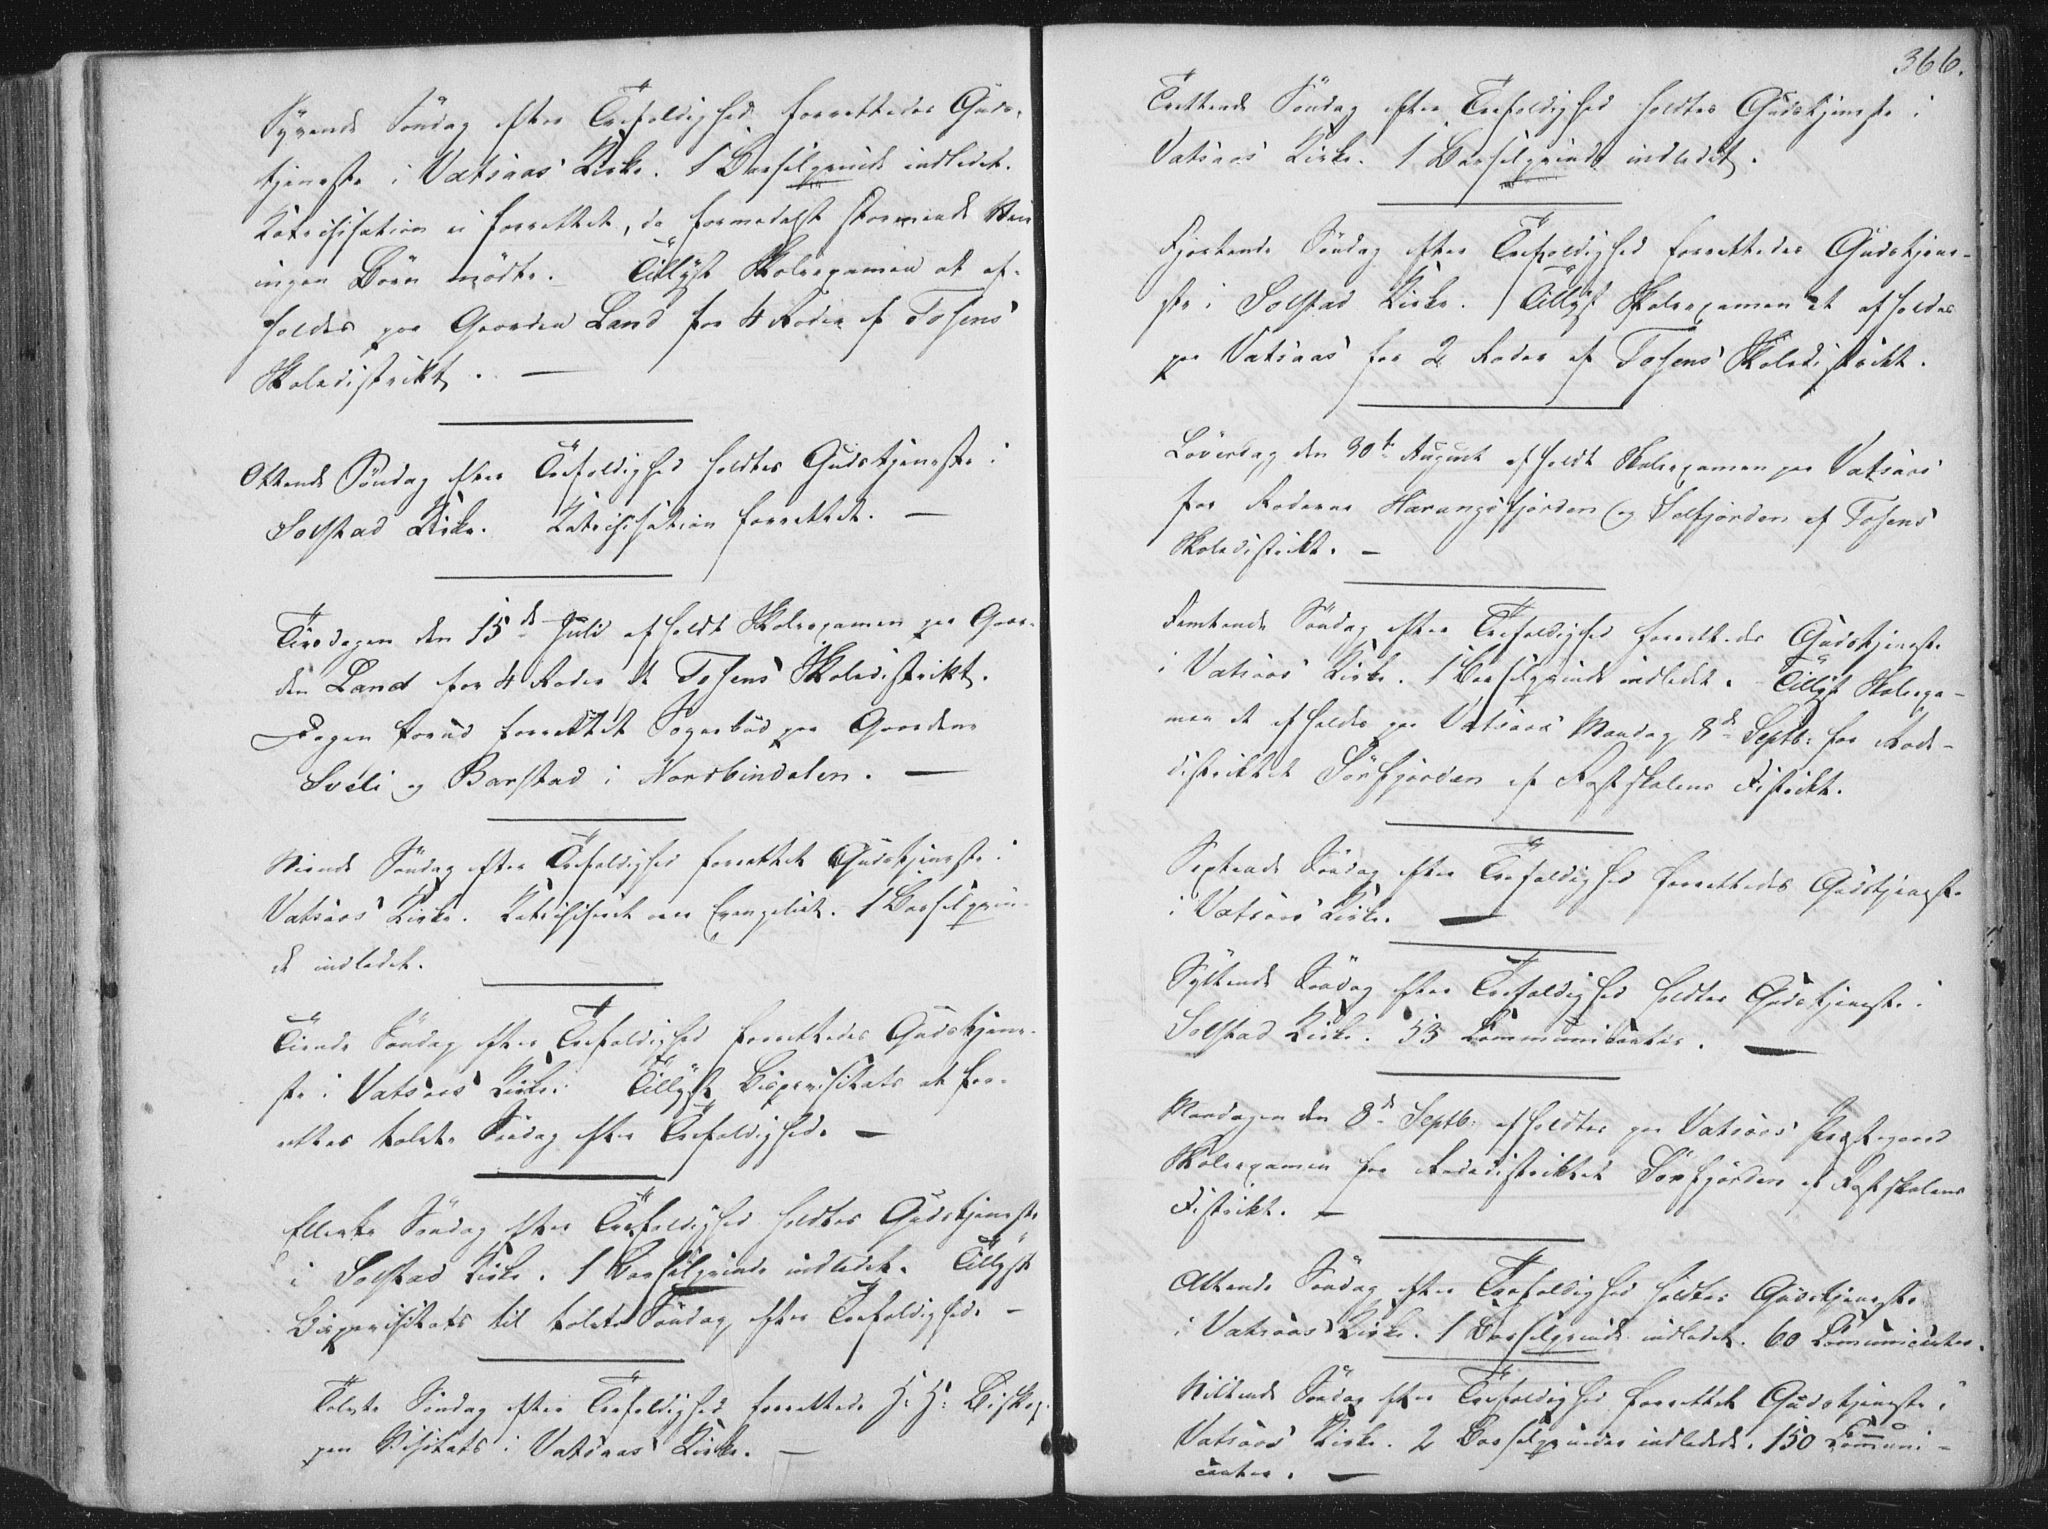 Syvende Søndag efter Trefoldighed forrettedes Guds-
tjeneste i Vatsaas Kirke. 1 Barselqvinde indledet.
Katechisation ei forrettet, da formedelst stormende Veir
ingen Børn mødte. Tillyst Skoleexamen at af-
holdes paa Gaarden Land for 4 Roder af Tosens
Skoledistrikt. —
Ottende Søndag efter Trefoldighed holdtes Gudstjeneste i
Solstad Kirke. Katechisation forrettet. —
Tirsdagen den 15de Juli afholdt Skoleexamen paa Gaar-
den Land for 4 Roder af Tosens Skoledistrikt.
Dagen forud forrettet Sognebud paa Gaardene
Svéli og Barstad i Nordbindalen. —
Niende Søndag efter Trefoldighed forrettet Gudstjeneste i
Vatsaas Kirke. Katechiseret over Evangeliet. 1 Barselqvin-
de indledet.
Tiende Søndag efter Trefoldighed forrettedes Gudstjene-
ste i Vatsaas Kirke. Tillyst Bispevisitats at for-
rettes tolvte Søndag efter Trefoldighed. —
Ellevte Søndag efter Trefoldighed holdtes Gudstjeneste
i Solstad Kirke. 1 Barselqvinde indledet. Tillyst
Bispevisitats til tolvte Søndag efter Trefoldighed. —
Tolvte Søndag efter Trefoldighed forrettede H: H: Biskop-
pen Visitats i Vatsaas Kirke. —
366.
Trettende Søndag efter Trefoldighed holdtes Gudstjeneste i
Vatsaas Kirke. 1 Barselqvinde indledet.
Fjortende Søndag efter Trefoldighed forrettedes Gudstjene-
ste i Solstad Kirke. Tillyst Skoleexamen at afholdes
paa Vatsaas for 2 Roder af Tosens Skoledistrikt.
Løverdag den 30te August afholdt Skoleexamen paa Vatsaas
for Roderne Harangsfjorden og Solfjorden af Tosens
Skoledistrikt. —
Femtende Søndag efter Trefoldighed forrettedes Gudstjeneste
i Vatsaas Kirke. 1 Barselqvinde indledet. Tillyst Skoleexa-
men at afholdes paa Vatsaas Mandag 8de Septb: for Rode-
distriktet Sörfjorden af Fastskolens Distrikt.
Sextende Søndag efter Trefoldighed forrettedes Gudstjeneste
i Vatsaas Kirke. —
Syttende Søndag efter Trefoldighed holdtes Gudstjeneste i
Solstad Kirke. 53 Communicanter. —
Mandagen den 8de Septb: afholdtes paa Vatsaas Præstegaard
Skoleexamen for Rodedistriktet Sörfjorden af Fastskolens
Distrikt. —
Attende Søndag efter Trefoldighed holdtes Gudstjeneste
i Vatsaas Kirke. 1 Barselqvinde indledet. 60 Communicanter.
Nittende Søndag efter Trefoldighed forrettet Gudstjeneste i
Vatsaas Kirke. 2 Barselqvinder indledede. 150 Communi-
canter. —